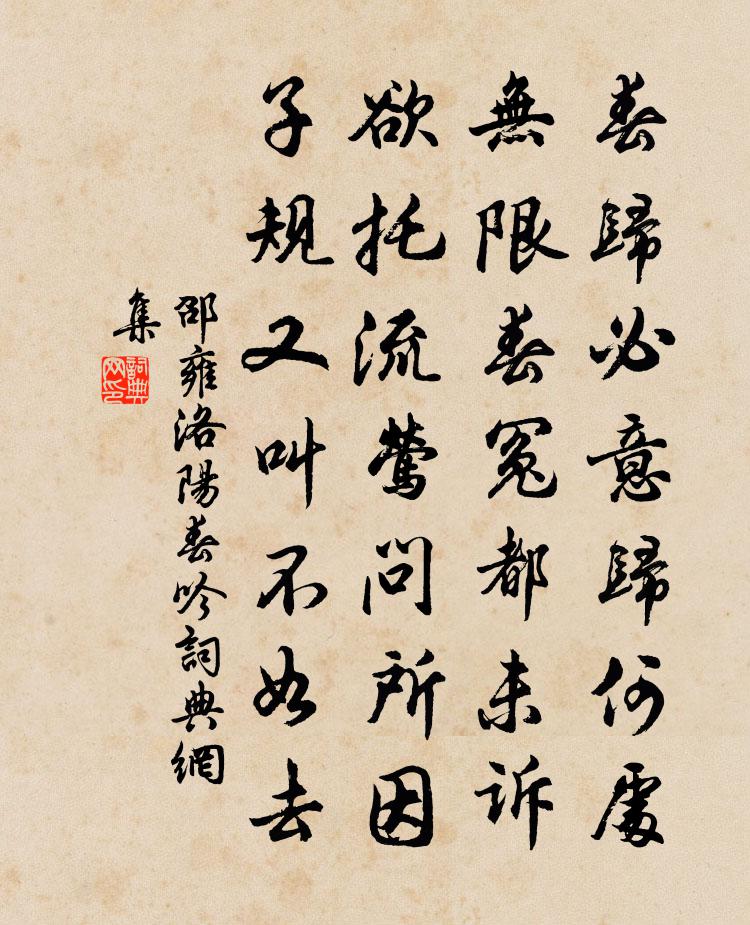 春歸必意歸何處
無限春冤都未訴
欲托流鶯問所因
子規又叫不如去
邵雍洛陽春吟詞典網
集
詞典
网印